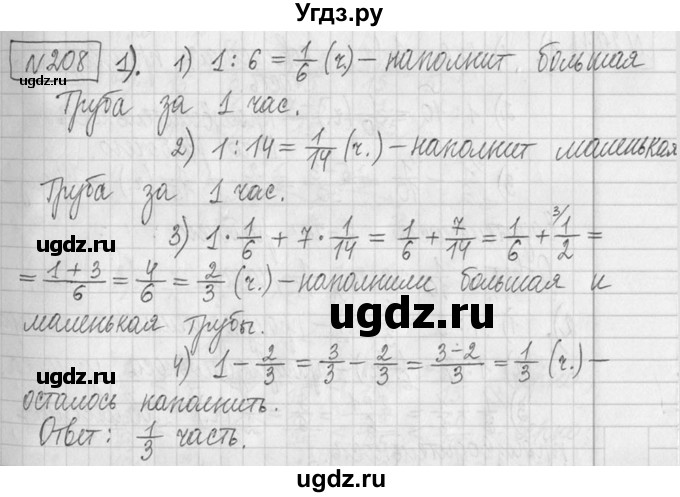 Угдз.ру
№208 1). 1) 1 : 6 = 1/6 (ч.) – наполнит большая
Труба за 1 час.
2) 1 : 14 = 1/14 (ч.) – наполнит маленькая
Труба за 1 час.
3) 1 · 1/6 + 7 · 1/14 = 1/6 + 7/14 = 1/6 + ³⁾1/2 =
= (1+3)/6 = 4/6 = 2/3 (ч.) – наполнили большая и
маленькая трубы.
4) 1 – 2/3 = 3/3 – 2/3 = (3–2)/3 = 1/3 (ч.) –
осталось наполнить.
Ответ: 1/3 часть.
ugdz.ru
ugdz.ru
ugdz.ru
ugdz.ru
ugdz.ru
ugdz.ru
ugdz.ru
ugdz.ru
ugdz.ru